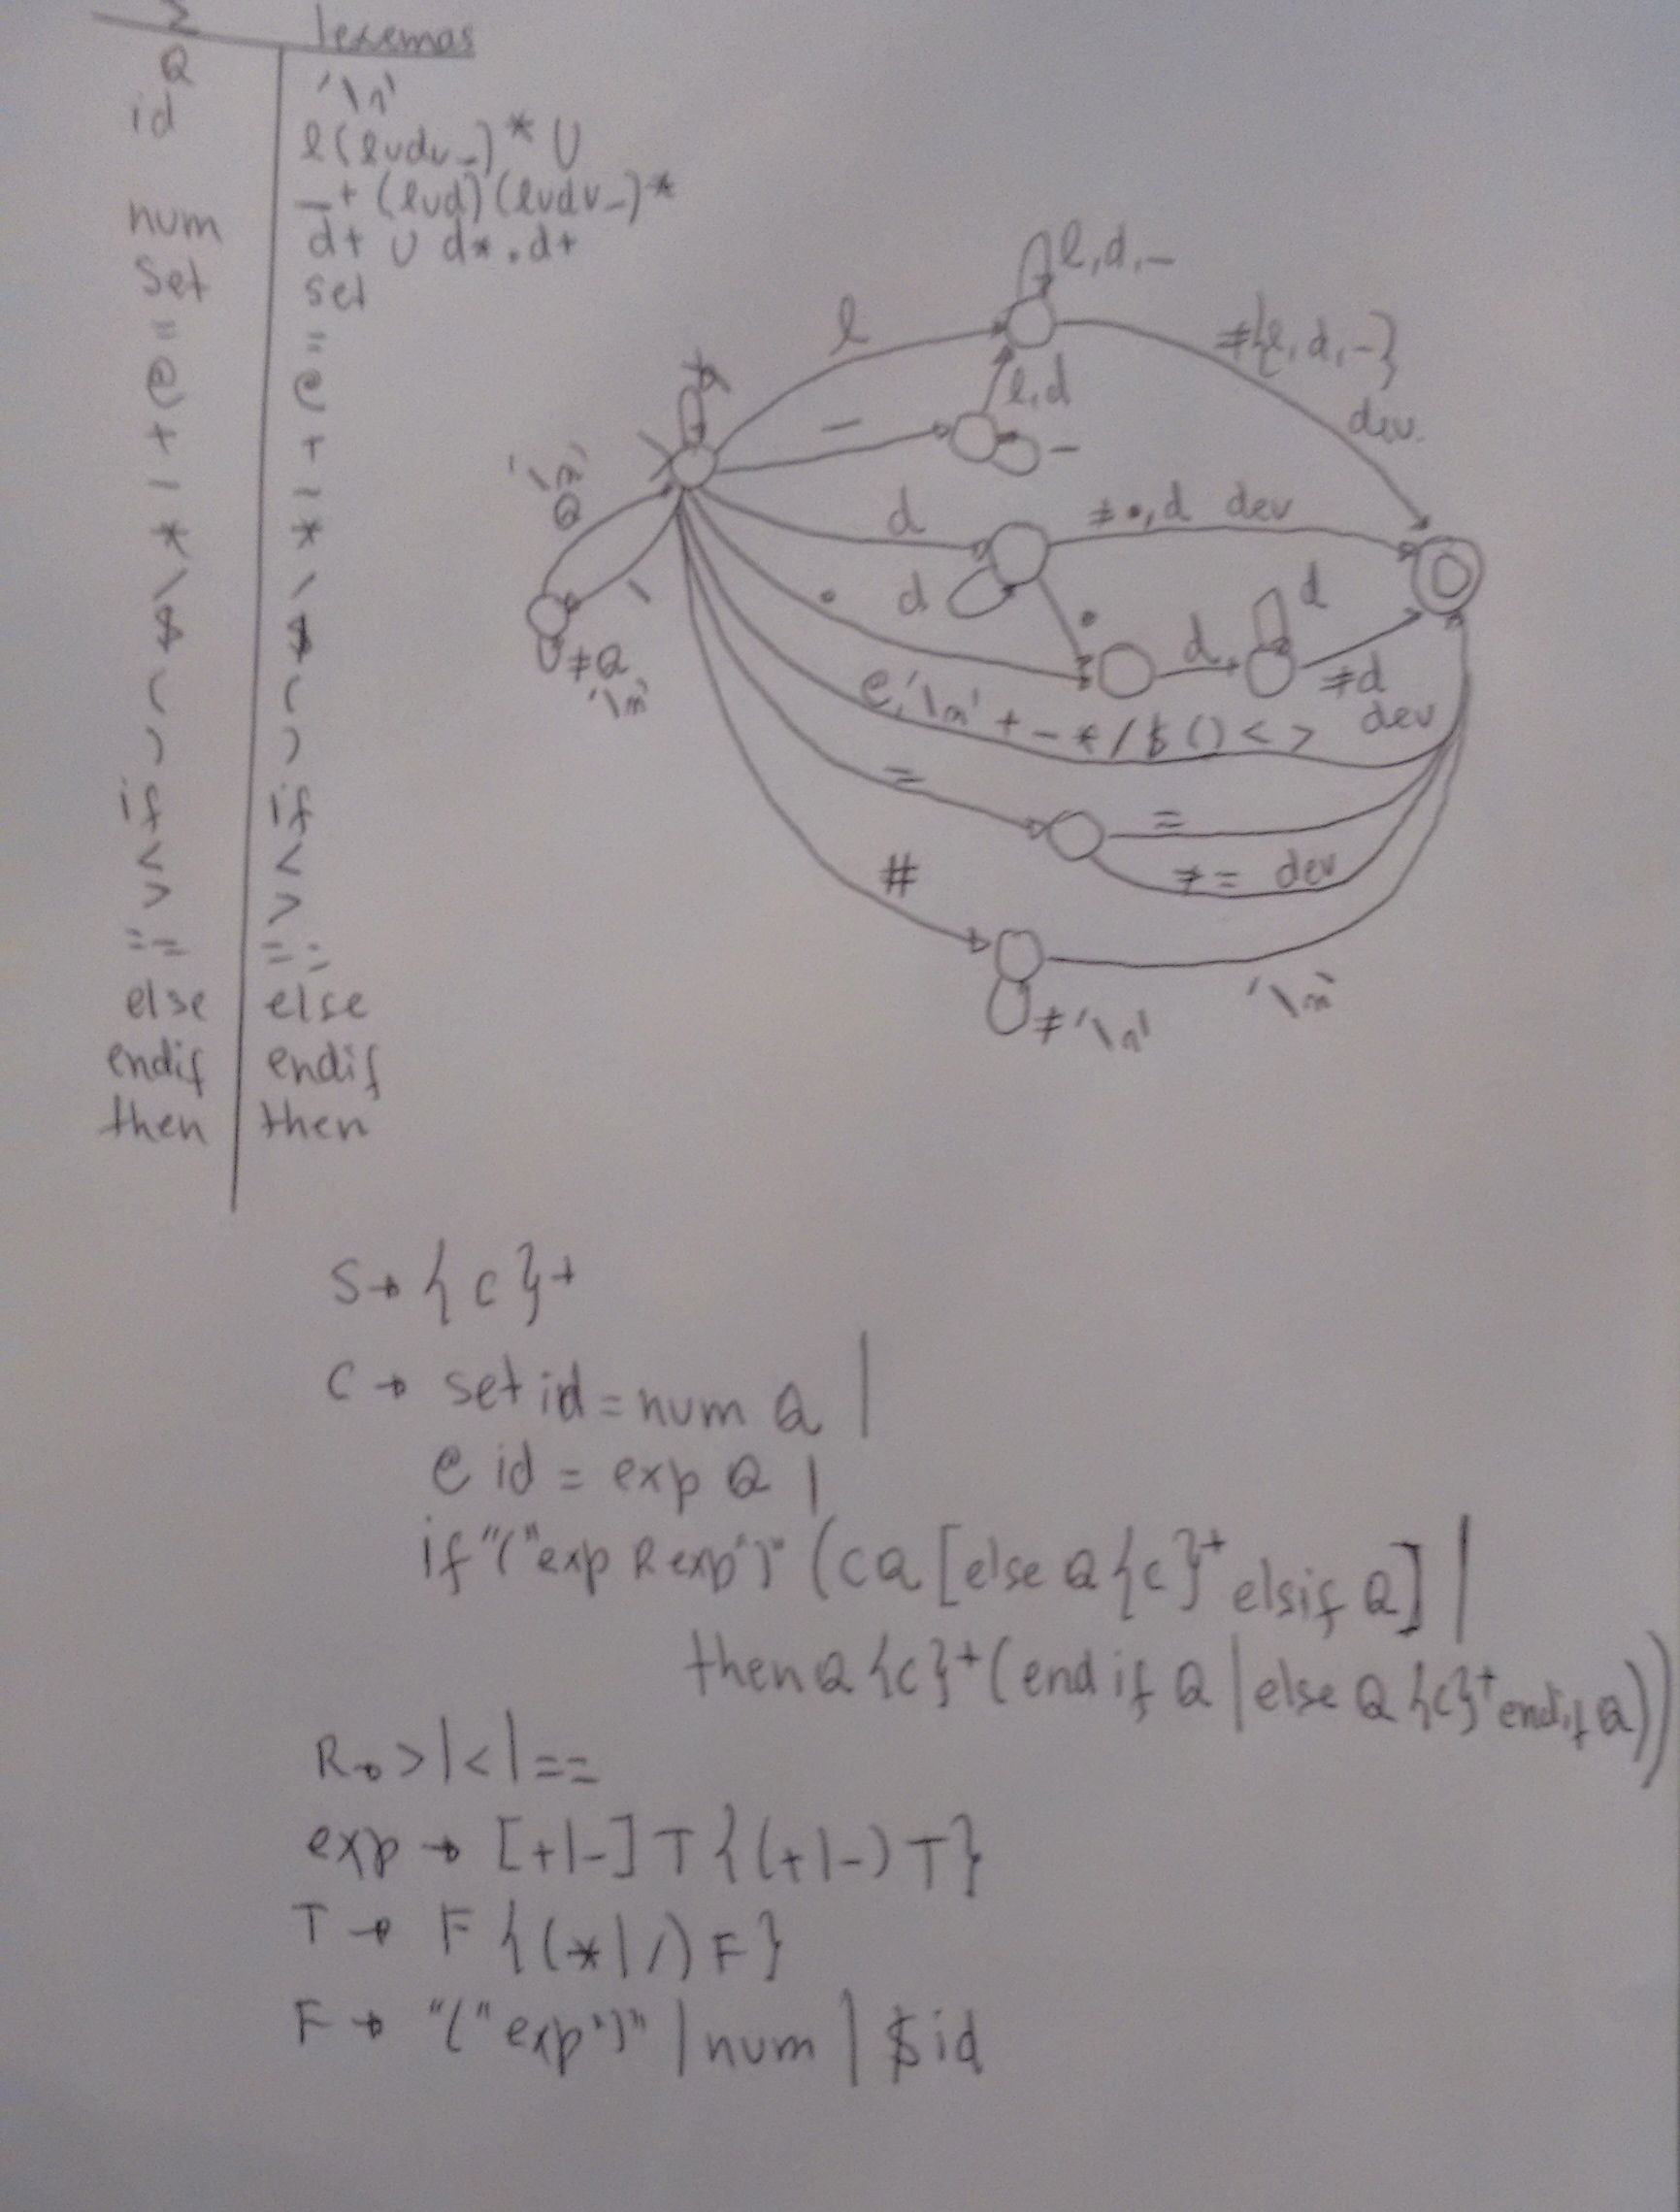 Σ lexemas
Q '\n'
id l(lυdυ_)* U
_+(lυd)(lυdυ_)*
num d+ U d*.d+
set set
= =
e e
+ +
- -
* *
\ \
$ $
( (
) )
if if
< <
> >
== ==
else else
endif endif
then then
l,d,_
l
≠{l,d,_}
dev.
l,d
_
_
d
≠.,d dev
d
.
.
d
d
≠d
dev
\
≠Q
'\n'
e,'\n' + - * / $ () < >
=
=
≠= dev
#
≠'\n'
'\n'
S → {c}+
C → set id = num Q |
e id = exp Q |
if "(" exp R exp ")" (CQ [else Q {c}+ elsif Q] |
then Q {c}+ (endif Q | else Q {c}+ endif Q))
R → > | < | ==
exp → [+|-] T {(+|-) T}
T → F {(*|/) F}
F → "(" exp ")" | num | $ id